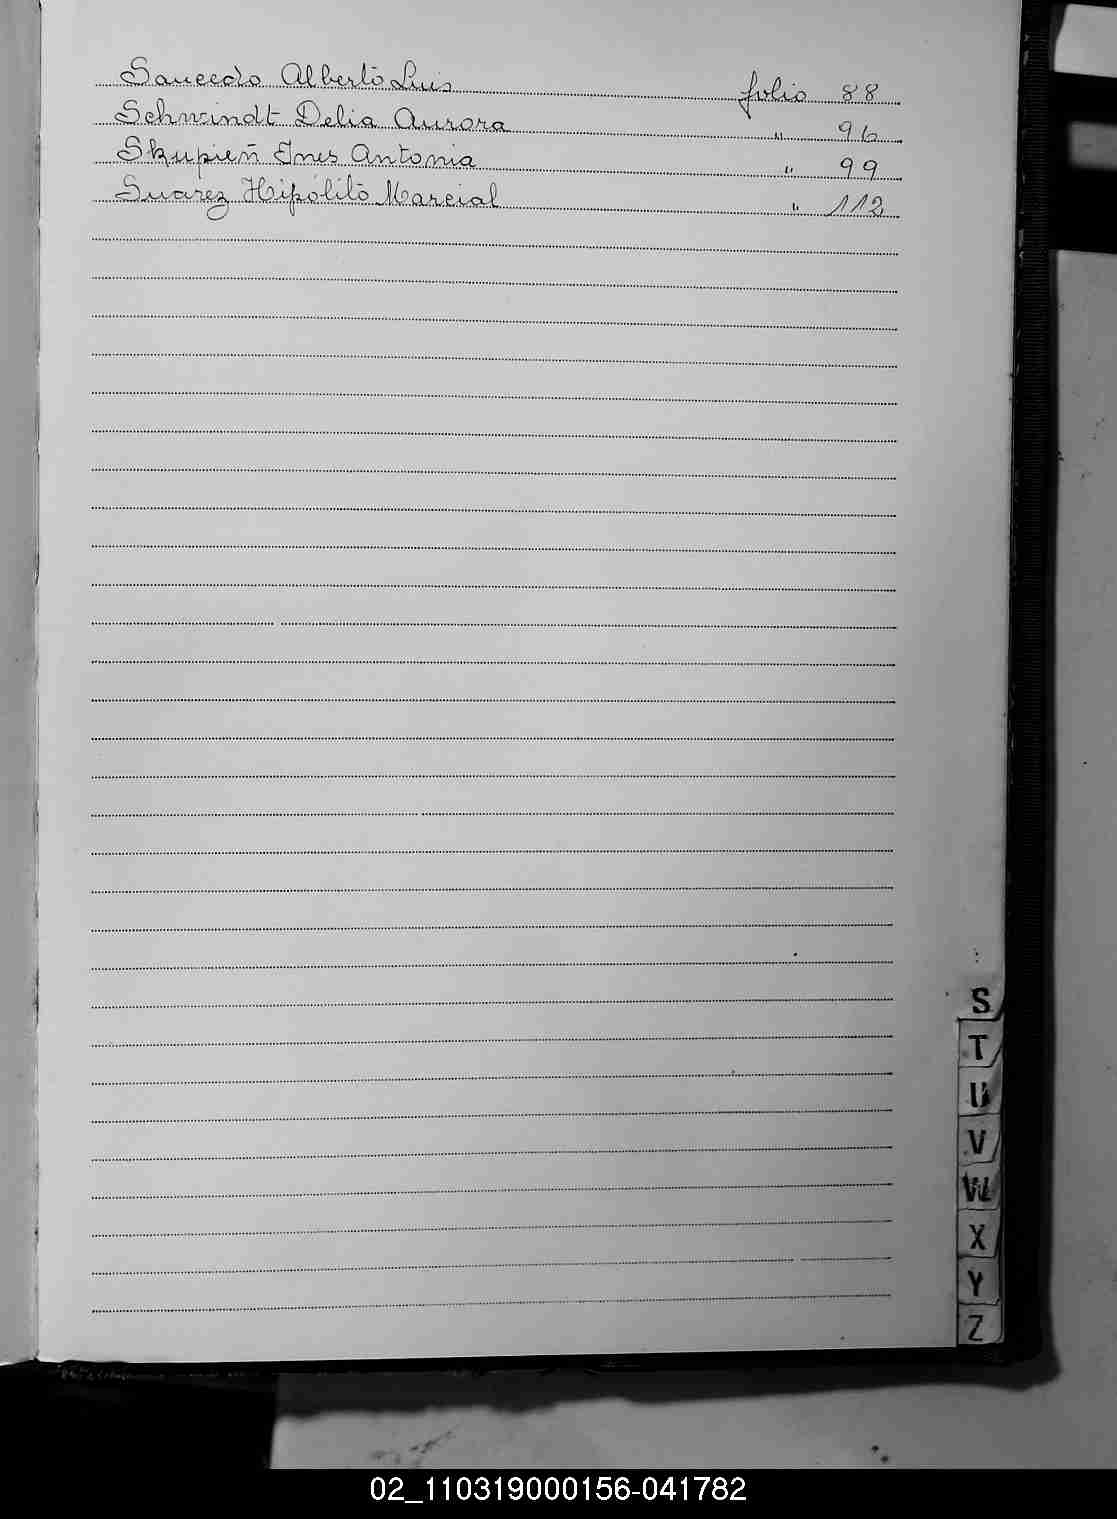 Saucedo Alberto Luis folio 88
Schwindt Delia Aurora " 96
Skupień Ines Antonia " 99
Suarez Hipólito Marcial " 112
S
T
U
V
W
X
Y
Z
02_110319000156-041782